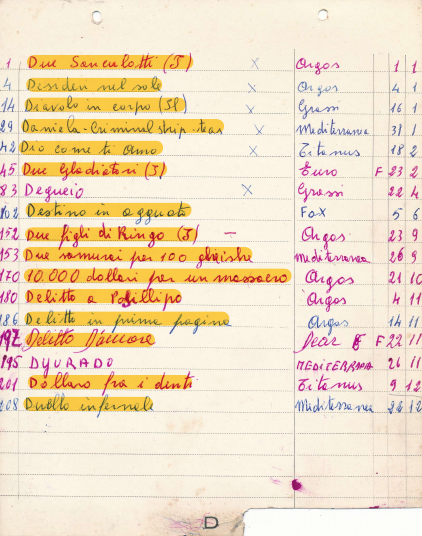 1 Due Sanculotti (I) x Orgos 1 1
4 Desideri nel sole x Orgos 4 1
14 Diavolo in corpo (Il) x Grassi 16 1
29 Daniela-Criminal strip-teas x Mediterranea 31 1
42 Dio come ti amo x Titanus 18 2
45 Due Gladiatori (I) Euro F 23 2
83 Degueio x Grassi 22 4
102 Destino in agguato Fox 5 6
152 Due figli di Ringo (I) - Orgos 23 9
153 Due samurai per 100 gheishe Mediterranea 26 9
170 10.000 dollari per un massacro Orgos 21 10
180 Delitto a Posillipo Orgos 4 11
186 Delitto in prima pagina Orgos 14 11
192 Delitto D'amore Dear F 22 11
195 DJURADO MEDITERRANEA 26 11
201 Dollaro fra i denti Titanus 9 12
208 Duello infernale Mediterranea 22 12
D